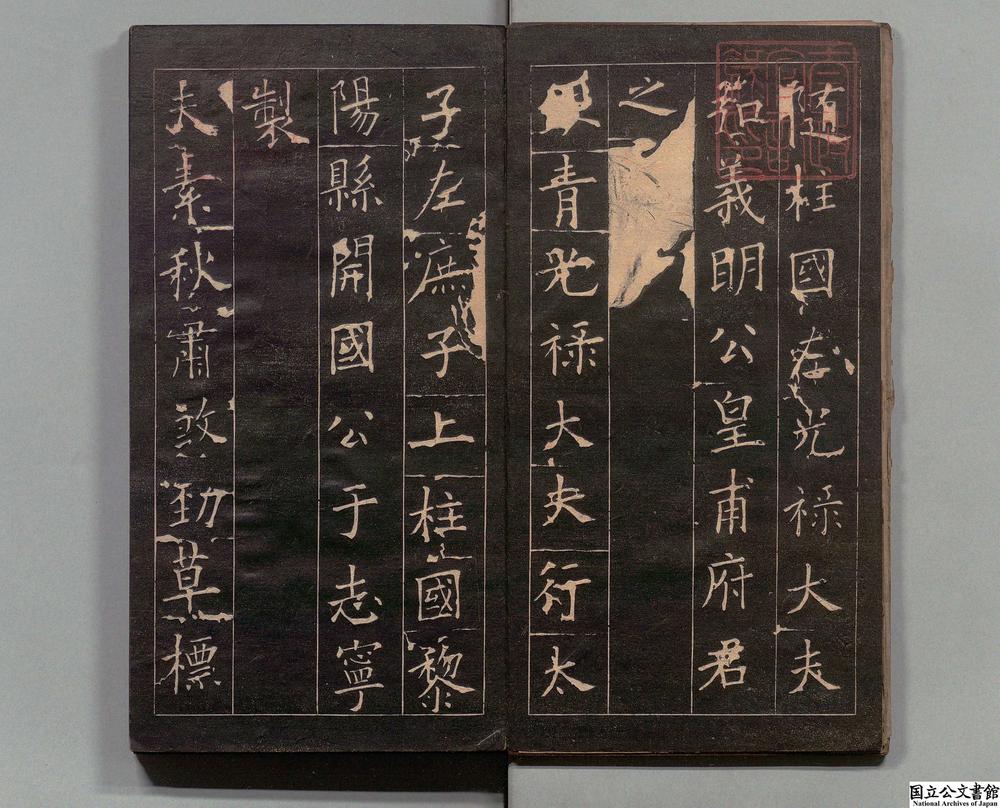 隨柱國左光祿大夫
弘義明公皇甫府君
之
青光祿大夫行太
子左庶子上柱國黎
陽縣開國公于志寧
製
夫素秋肅煞勁草標
国立公文書館
National Archives of Japan